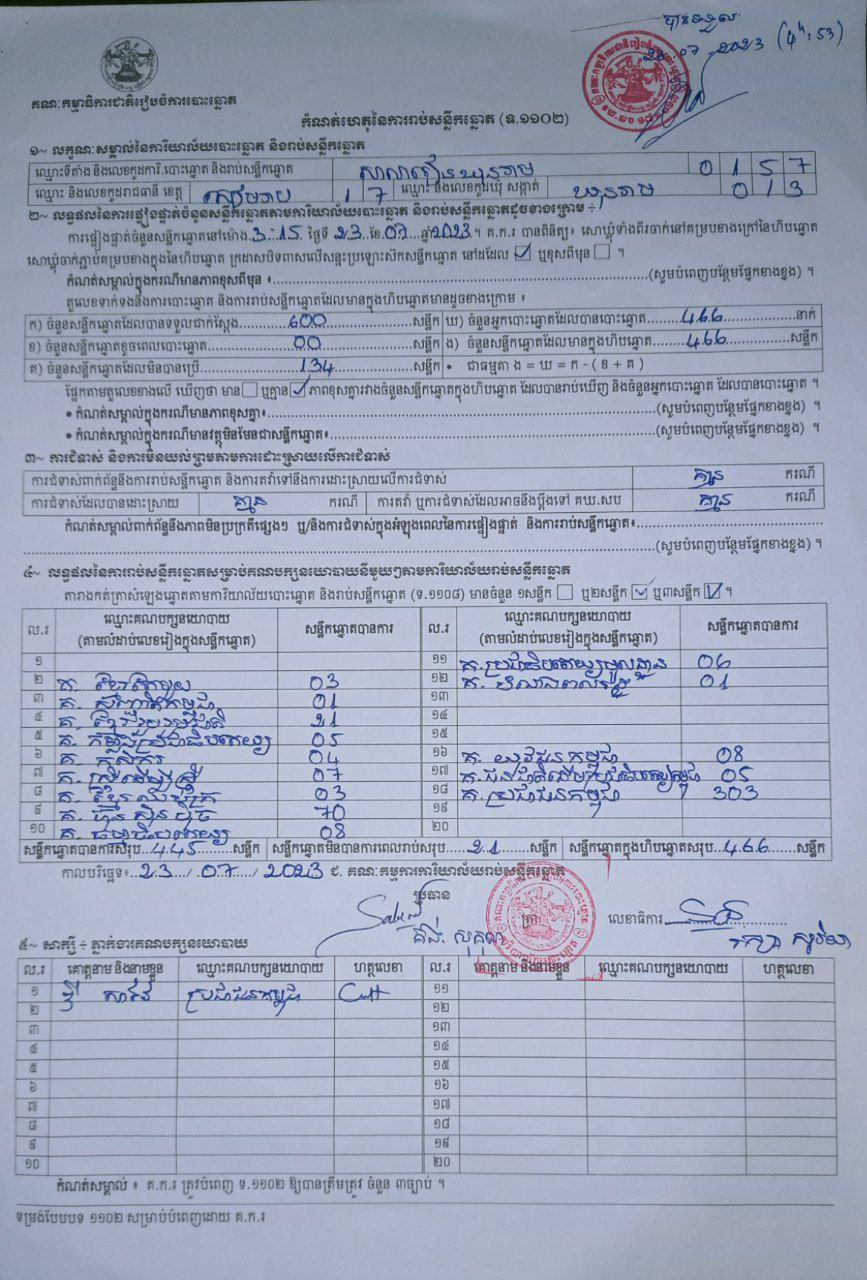 បានទទួល
23.07.2023 (4h,53)
គណៈកម្មាធិការជាតិរៀបចំការបោះឆ្នោត
កំណត់ហេតុនៃការរាប់សន្លឹកឆ្នោត (ទ.១១០២)
១~ លក្ខណៈសម្គាល់នៃការិយាល័យបោះឆ្នោត និងរាប់សន្លឹកឆ្នោត
ឈ្មោះទីតាំង និងលេខកូដការិ.បោះឆ្នោត និងរាប់សន្លឹកឆ្នោត សាលារៀន 0 1 5 7
ឈ្មោះ និងលេខកូដរាជធានី ខេត្ត សៀមរាប 1 7 ឈ្មោះ និងលេខកូដឃុំ សង្កាត់ 0 1 3
២~ លទ្ធផលនៃការផ្ទៀងផ្ទាត់ចំនួនសន្លឹកឆ្នោតតាមការិយាល័យបោះឆ្នោត និងរាប់សន្លឹកឆ្នោតដូចខាងក្រោម ÷
ការផ្ទៀងផ្ទាត់ចំនួនសន្លឹកឆ្នោតនៅម៉ោង 3:15 ថ្ងៃទី 23 ខែ 07 ឆ្នាំ 2023។ គ.ក.រ បានពិនិត្យ៖ សោឃ្លុំទាំងពីរចាក់នៅគម្របខាងក្រៅនៃហិបឆ្នោត
សោឃ្លុំចាក់ភ្ជាប់គម្របខាងក្នុងនៃហិបឆ្នោត ក្រដាសបិទពាសលើសន្ទះប្រឡោះសិកសន្លឹកឆ្នោត នៅដដែល ☑ ឬខុសពីមុន ☐ ។
កំណត់សម្គាល់ក្នុងករណីមានភាពខុសពីមុន ៖ (សូមបំពេញបន្ថែមផ្នែកខាងខ្នង) ។
តួលេខទាក់ទងនឹងការបោះឆ្នោត និងការរាប់សន្លឹកឆ្នោតដែលមានក្នុងហិបឆ្នោតមានដូចខាងក្រោម ៖
ក) ចំនួនសន្លឹកឆ្នោតដែលបានទទួលជាក់ស្តែង 600 សន្លឹក ឃ) ចំនួនអ្នកបោះឆ្នោតដែលបានបោះឆ្នោត 466 នាក់
ខ) ចំនួនសន្លឹកឆ្នោតខូចពេលបោះឆ្នោត 00 សន្លឹក ង) ចំនួនសន្លឹកឆ្នោតដែលមានក្នុងហិបឆ្នោត 466 សន្លឹក
គ) ចំនួនសន្លឹកឆ្នោតដែលមិនបានប្រើ 134 សន្លឹក • ជាធម្មតា ង = ឃ = ក - ( ខ + គ )
ផ្អែកតាមតួលេខខាងលើ ឃើញថា មាន ☐ ឬគ្មាន ☑ ភាពខុសគ្នារវាងចំនួនសន្លឹកឆ្នោតក្នុងហិបឆ្នោត ដែលបានរាប់ឃើញ និងចំនួនអ្នកបោះឆ្នោត ដែលបានបោះឆ្នោត ។
• កំណត់សម្គាល់ក្នុងករណីមានភាពខុសគ្នា៖ (សូមបំពេញបន្ថែមផ្នែកខាងខ្នង) ។
• កំណត់សម្គាល់ក្នុងករណីមានវត្ថុមិនមែនជាសន្លឹកឆ្នោត៖ (សូមបំពេញបន្ថែមផ្នែកខាងខ្នង) ។
៣~ ការជំទាស់ និងការមិនយល់ព្រមតាមការដោះស្រាយលើការជំទាស់
ការជំទាស់ពាក់ព័ន្ធនឹងការរាប់សន្លឹកឆ្នោត និងការតវ៉ាទៅនឹងការដោះស្រាយលើការជំទាស់ គ្មាន ករណី
ការជំទាស់ដែលបានដោះស្រាយ គ្មាន ករណី ការតវ៉ា ឬការជំទាស់ដែលអាចនឹងប្តឹងទៅ គឃ.សប គ្មាន ករណី
កំណត់សម្គាល់ពាក់ព័ន្ធនឹងភាពមិនប្រក្រតីផ្សេងៗ ឬ/និងការជំទាស់ក្នុងអំឡុងពេលនៃការផ្ទៀងផ្ទាត់ និងការរាប់សន្លឹកឆ្នោត៖
(សូមបំពេញបន្ថែមផ្នែកខាងខ្នង) ។
៤~ លទ្ធផលនៃការរាប់សន្លឹកឆ្នោតសម្រាប់គណបក្សនយោបាយនីមួយៗតាមការិយាល័យរាប់សន្លឹកឆ្នោត
តារាងកត់ត្រាសំឡេងឆ្នោតតាមការិយាល័យបោះឆ្នោត និងរាប់សន្លឹកឆ្នោត (ទ.១១០៨) មានចំនួន ១សន្លឹក ☐ ឬ២សន្លឹក ☑ ឬ៣សន្លឹក ☑ ។
ល.រ ឈ្មោះគណបក្សនយោបាយ (តាមលំដាប់លេខរៀងក្នុងសន្លឹកឆ្នោត) សន្លឹកឆ្នោតបានការ ល.រ ឈ្មោះគណបក្សនយោបាយ (តាមលំដាប់លេខរៀងក្នុងសន្លឹកឆ្នោត) សន្លឹកឆ្នោតបានការ
១ ១១ គ.ប្រជាធិបតេយ្យមូលដ្ឋាន 06
២ គ. ខ្មែរតែមួយ 03 ១២ 01
៣ គ. សញ្ជាតិកម្ពុជា 01 ១៣
៤ គ. ខ្មែររួបរួមជាតិ 21 ១៤
៥ គ. កម្លាំងប្រជាធិបតេយ្យ 05 ១៥
៦ គ. កសិករ 04 ១៦ គ. យុវជនកម្ពុជា 08
៧ គ. ស្រ្តីដើម្បីស្រ្តី 07 ១៧ គ.ជនជាតិដើមប្រជាធិបតេយ្យកម្ពុជា 05
៨ គ. ខ្មែរអភិរក្ស 03 ១៨ គ. ប្រជាជនកម្ពុជា 303
៩ គ. ហ៊្វុនស៊ិនប៉ិច 70 ១៩
១០ គ. ធម្មាធិបតេយ្យ 08 ២០
សន្លឹកឆ្នោតបានការសរុប 445 សន្លឹក សន្លឹកឆ្នោតមិនបានការពេលរាប់សរុប 21 សន្លឹក សន្លឹកឆ្នោតក្នុងហិបឆ្នោតសរុប 466 សន្លឹក
កាលបរិច្ឆេទ៖ 23 / 07 / 2023 ជ. គណៈកម្មការការិយាល័យរាប់សន្លឹកឆ្នោត
ប្រធាន ត្រា លេខាធិការ
៥~ សាក្សី ÷ ភ្នាក់ងារគណបក្សនយោបាយ
ល.រ គោត្តនាម និងនាមខ្លួន ឈ្មោះគណបក្សនយោបាយ ហត្ថលេខា ល.រ គោត្តនាម និងនាមខ្លួន ឈ្មោះគណបក្សនយោបាយ ហត្ថលេខា
១ ប្រជាជនកម្ពុជា ១១
២ ១២
៣ ១៣
៤ ១៤
៥ ១៥
៦ ១៦
៧ ១៧
៨ ១៨
៩ ១៩
១០ ២០
កំណត់សម្គាល់ ៖ គ.ក.រ ត្រូវបំពេញ ទ.១១០២ ឱ្យបានត្រឹមត្រូវ ចំនួន ៣ច្បាប់ ។
ទម្រង់បែបបទ ១១០២ សម្រាប់បំពេញដោយ គ.ក.រ